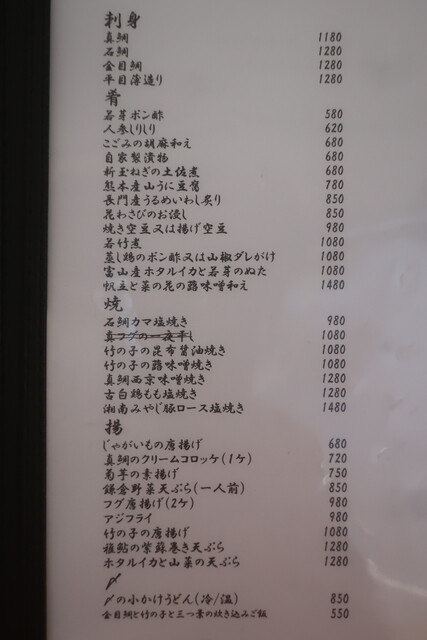 刺身
真鯛 1180
石鯛 1280
金目鯛 1280
平目薄造り 1280
肴
若芽ポン酢 580
人参しりしり 620
こごみの胡麻和え 680
自家製漬物 680
新玉ねぎの土佐煮 680
熊本産山うに豆腐 780
長門産うるめいわし炙り 850
花わさびのお浸し 850
焼き空豆又は揚げ空豆 980
若竹煮 1080
蒸し鶏のポン酢又は山椒ダレがけ 1080
富山産ホタルイカと若芽のぬた 1080
帆立と菜の花の蕗味噌和え 1480
焼
石鯛カマ塩焼き 980
真フグの一夜干し 1080
竹の子の昆布醤油焼き 1080
竹の子の蕗味噌焼き 1080
真鯛西京味噌焼き 1280
古白鶏もも塩焼き 1280
湘南みやじ豚ロース塩焼き 1480
揚
じゃがいもの唐揚げ 680
真鯛のクリームコロッケ(1ケ) 720
菊芋の素揚げ 750
鎌倉野菜天ぷら(一人前) 850
フグ唐揚げ(2ケ) 980
アジフライ 980
竹の子の唐揚げ 1080
稚鮎の紫蘇巻き天ぷら 1280
ホタルイカと山菜の天ぷら 1280
〆
〆の小かけうどん(冷/温) 850
金目鯛と竹の子と三つ葉の炊き込みご飯 550